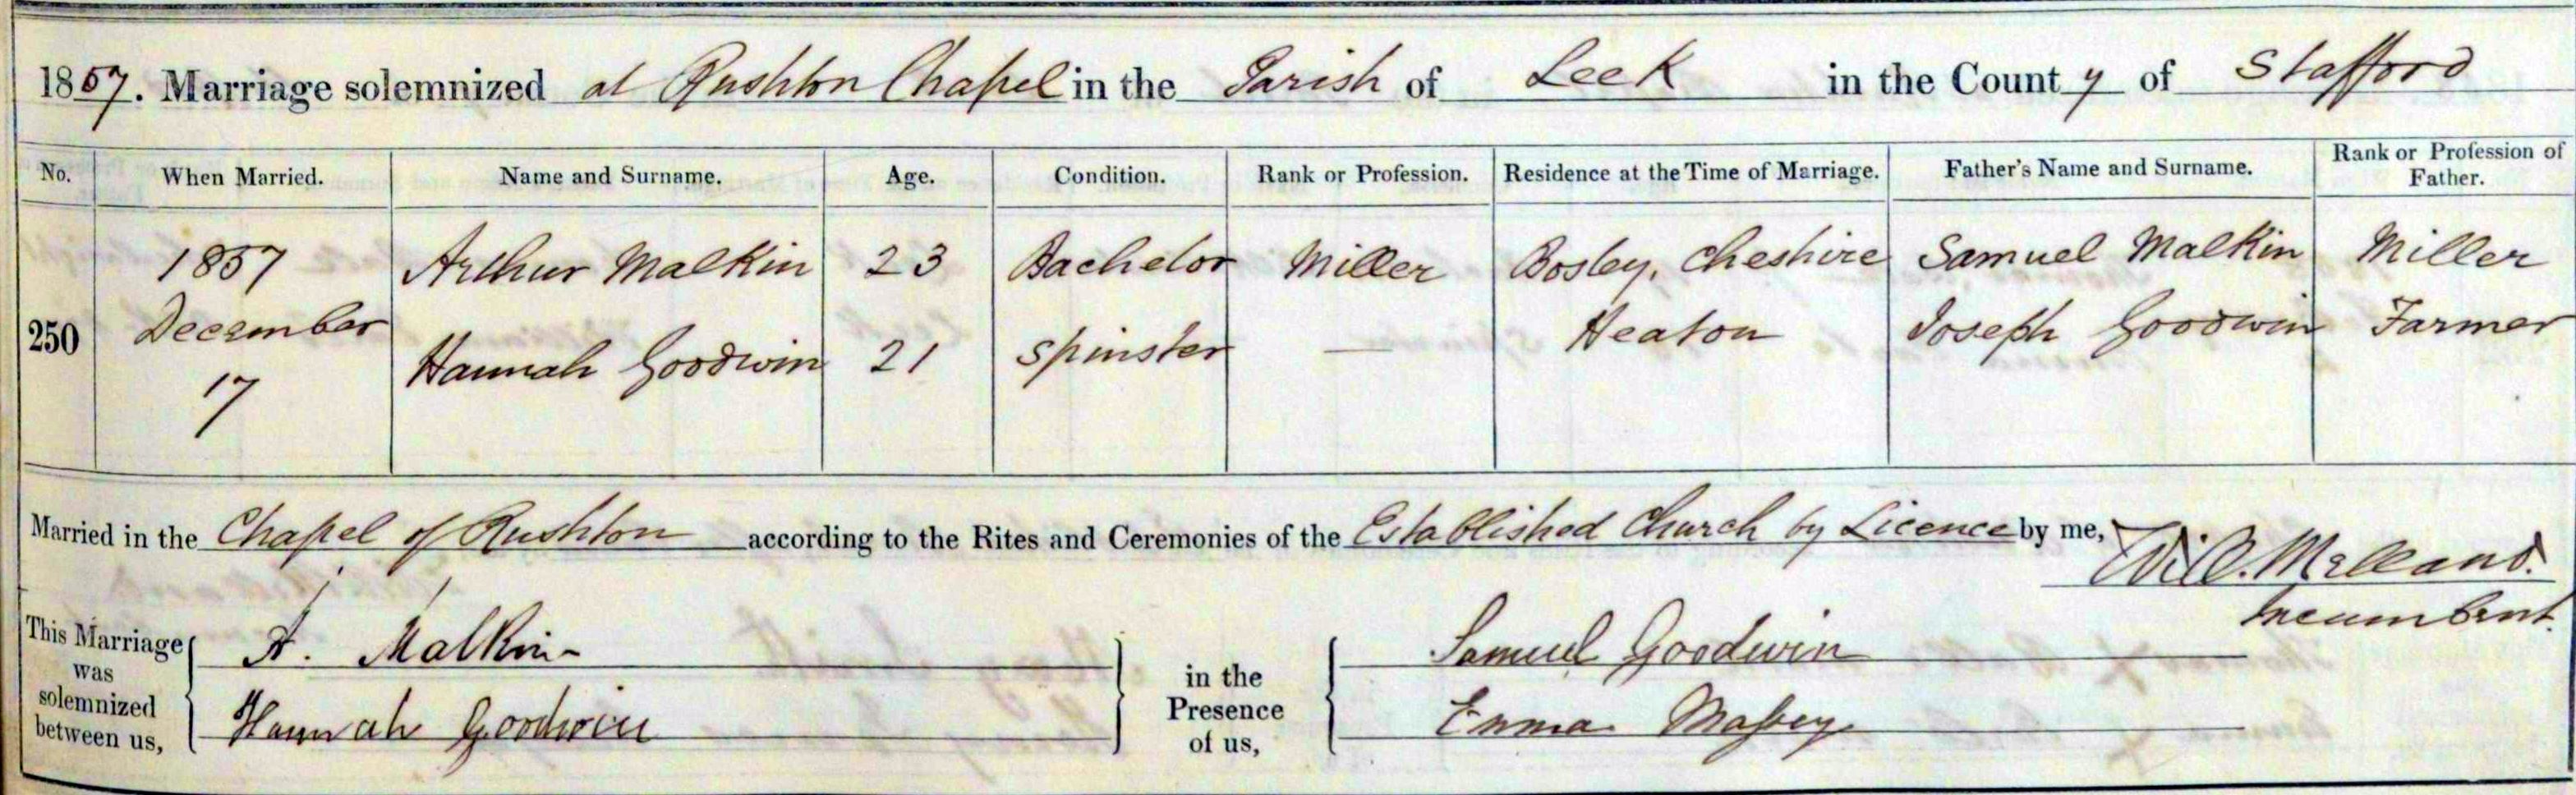 1857. Marriage solemnized at Rushton Chapel in the Parish of Leek in the County of Stafford
No. When Married. Name and Surname. Age. Condition. Rank or Profession. Residence at the Time of Marriage. Father's Name and Surname. Rank or Profession of Father.
1857 Arthur Malkin 23 Bachelor Miller Bosley, Cheshire Samuel Malkin Miller
250 December Hannah Goodwin 21 Spinster — Heaton Joseph Goodwin Farmer
17
Married in the Chapel of Rushton according to the Rites and Ceremonies of the Established Church by Licence by me,
Melland.
Incumbent.
This Marriage was solemnized between us,
A. Malkin
Hannah Goodwin
in the Presence of us,
Samuel Goodwin
Emma Massey